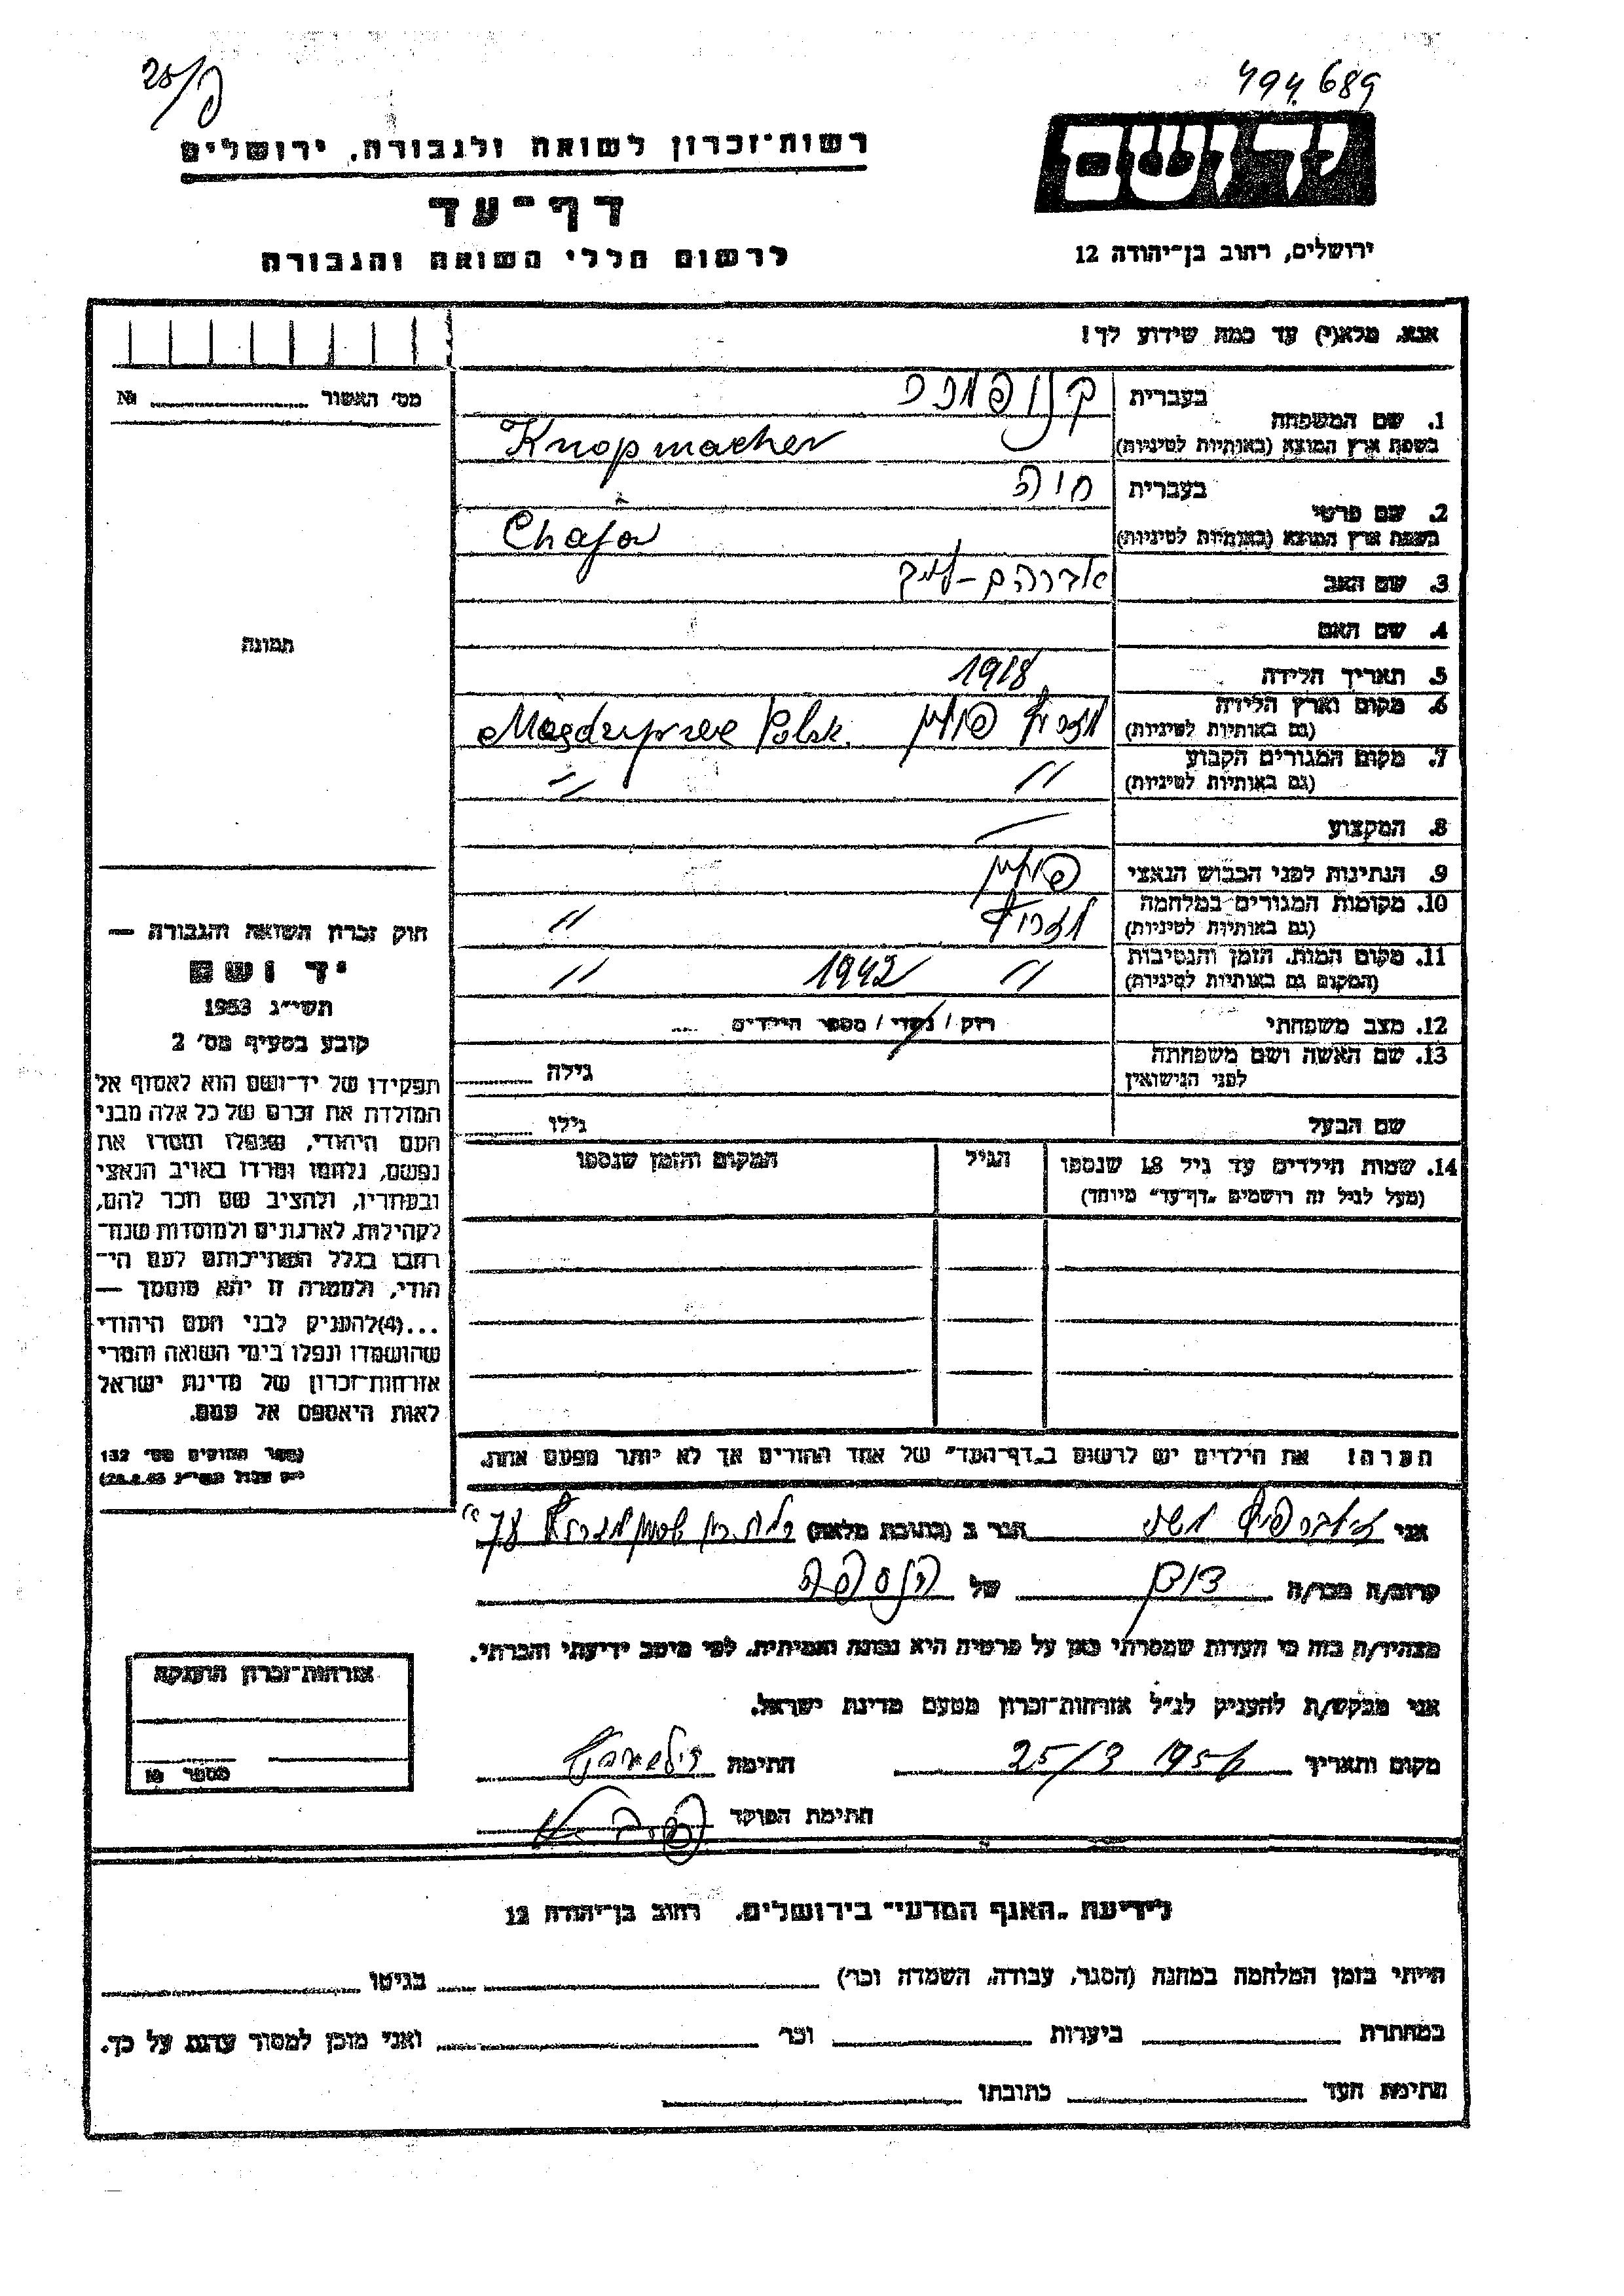 494689
פ/25
יד ושם
ירושלים, רחוב בן־יהודה 12
רשות־זכרון לשואה ולגבורה, ירושלים
דף־עד
לרשום חללי השואה והגבורה
אנא, מלא(י) עד כמה שידוע לך!
מס׳ האשור № 
1. שם המשפחה
בעברית
בשפת ארץ המוצא (באותיות לטיניות)
Knopmacher
2. שם פרטי
בעברית חיה
בשפת ארץ המוצא (באותיות לטיניות)
Chaja
3. שם האב אברהם-
4. שם האם
5. תאריך הלידה 1918
6. מקום וארץ הלידה
(גם באותיות לטיניות)
פולין Polsk.
7. מקום המגורים הקבוע
(גם באותיות לטיניות)
" "
8. המקצוע —
9. הנתינות לפני הכבוש הנאצי פולין
10. מקומות המגורים במלחמה
(גם באותיות לטיניות)
"
11. מקום המות, הזמן והנסיבות
(המקום גם באותיות לטיניות)
" 1942 "
12. מצב משפחתי רוק / נשוי / מספר הילדים
13. שם האשה ושם משפחתה
לפני הנישואין
גילה
שם הבעל גילו
14. שמות הילדים עד גיל 18 שנספו
(מעל לגיל זה רושמים "דף־עד" מיוחד)
הגיל
המקום והזמן שנספו
הערה! את הילדים יש לרשום ב"דף־העד" של אחד ההורים אך לא יותר מפעם אחת.
תמונה
חוק זכרון השואה והגבורה —
יד ושם
תשי״ג 1953
קובע בסעיף מס׳ 2
תפקידו של יד־ושם הוא לאסוף אל
המולדת את זכרם של כל אלה מבני
העם היהודי, שנפלו ומסרו את
נפשם, נלחמו ומרדו באויב הנאצי
ובעוזריו, ולהציב שם וזכר להם,
לקהילות, לארגונים ולמוסדות שנח־
רבו בגלל השתייכותם לעם הי־
הודי, ולמטרה זו יהא מוסמך —
...(4)להעניק לבני העם היהודי
שהושמדו ונפלו בימי השואה והמרי
אזרחות־זכרון של מדינת ישראל
לאות היאספם אל עמם.
(ספר החוקים מס׳ 132
אני הגר ב (כתובת מלאה) 78
קרוב/ה מכר/ה של
מצהיר/ה בזה כי העדות שמסרתי כאן על פרטיה היא נכונה ואמיתית, לפי מיטב ידיעתי והכרתי.
אני מבקש/ת להעניק לנ״ל אזרחות־זכרון מטעם מדינת ישראל.
מקום ותאריך 25/3 195 חתימה
חתימת הפוקד
אזרחות־זכרון הוענקה
מספר №
לידיעת "האגף המדעי" בירושלים, רחוב בן־יהודה 12
הייתי בזמן המלחמה במחנה (הסגר, עבודה, השמדה וכו׳) בגיטו
במחתרת ביערות וכו׳ ואני מוכן למסור עדות על כך.
חתימת העד כתובתו